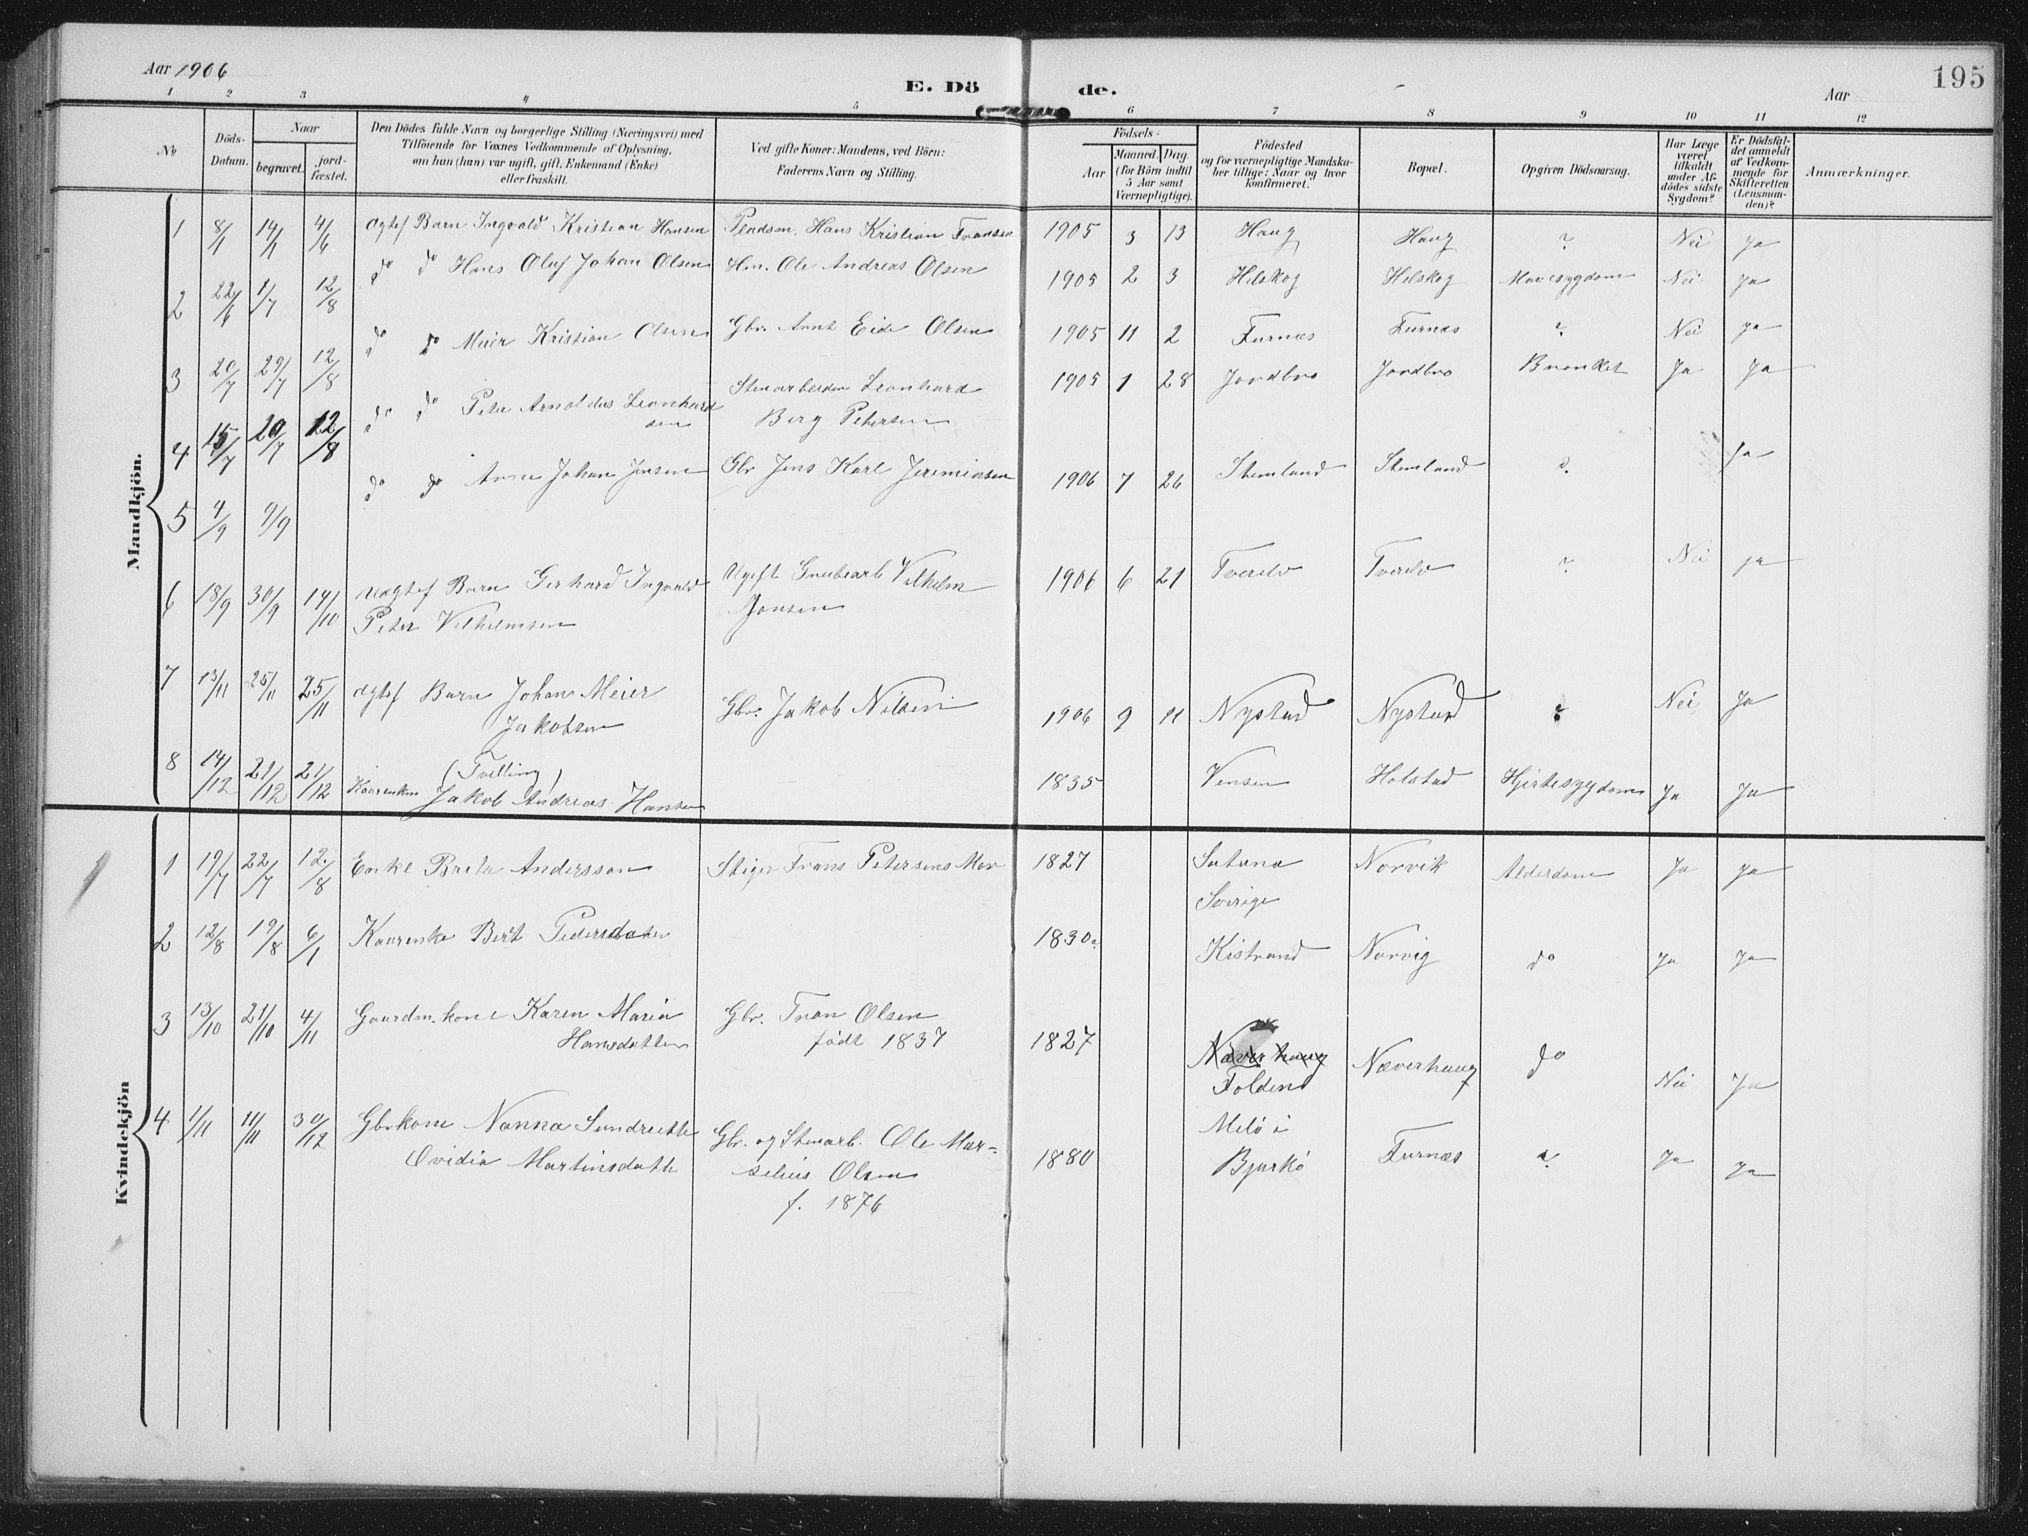 Aar 1906
E. Dö
de.
Aar
195
1 2 3 4 5 6 7 8 9 10 11 12
No
Döds-Datum.
Naar
begravet.
jord-fæstet.
Den Dödes fulde Navn og borgerlige Stilling (Næringsvei) med
Tilföiende for Voxnes Vedkommende af Oplysning,
om hun (han) var ugift, gift, Enkemand (Enke)
eller fraskilt.
Ved gifte Koner: Mandens, ved Börn:
Faderens Navn og Stilling.
Födsels-
Aar
Maaned. Dag.
(for Börn indtil
5 Aar samt
Værnepligtige).
Födested
og for værnepligtige Mandska-
ber tillige: Naar og hvor
konfirmeret.
Bopæl.
Opgiven Dödsaarsag.
Har Læge
været
tilkaldt
under Af-
dödes sidste
Sygdom?
Er Dödsfal-
det anmeldt
af Vedkom-
mende for
Skifteretten
(Lensman-
den)?
Anmærkninger.
Mandkjön.
1 8/1 14/1 4/6 Ægtef Barn Ingvald Kristian Hansen Pladsm. Hans Kristian Fransen 1905 3 13 Haug Haug ? Nei Ja
2 22/6 1/7 12/8 do do Hans Oluf Johan Olsen Hm. Ole Andreas Olsen 1905 2 3 Hilskog Hilskog Mavesygdom Nei Ja
3 20/7 29/7 12/8 do do Meier Kristian Olsen Gbr. Arnt Eide Olsen 1905 11 2 Furnæs Furnæs ? Nei Ja
4 15/7 20/7 12/8 do do Peter Arnoldus Leonhard
sen
Stenarbeider Leonhard
Berg Petersen
1905 1 28 Jordbro Jordbro Bronket Ja Ja
5 4/9 9/9 do do Arne Johan Jensen Gbr Jens Karl Jeremiassen 1906 7 26 Stemland Stemland ? Ja
6 18/9 30/9 14/10 Uægtef Barn Gerhard Ingvald
Peter Vilhelmsen
Ugift Grubearb Vilhelm
Jonsen
1906 6 21 Tverelv Tverelv ? Nei Ja
7 13/11 25/11 25/11 Ægtef Barn Johan Meier
Jakobsen
Gbr. Jakob Nilsen 1906 9 11 Nystad Nystad ? Nei Ja
8 14/12 21/12 21/12 (Tvilling)
Kaarenkm Jakob Andreas Hansen 1835 Vensen Holstad Hjertesygdom Ja Ja
Kvindekjön
1 19/7 22/7 12/8 Enke Brita Andersson Stiger Frans Petersens Mor 1827 Satuna
Sverige
Norvik Alderdom Ja Ja
2 12/8 19/8 6/1 Kaarenke Berit Pedersdatter 1830 Kistrand Norvig do Ja Ja
3 13/10 21/10 4/11 Gaardm.kone Karen Maria
Hansdatter
Gbr. Fran Olsen
födt 1837
1827 Næverhaug
Folden
Næverhaug do Nei Ja
4 1/11 11/11 30/12 Gbrkone Nanna Sundrette
Ovidia Martinsdatte
Gbr. og Stenarb. Ole Mar-
selius Olsen
f. 1876
1880 Melö i
Bjarkö
Furnæs ? Ja Ja